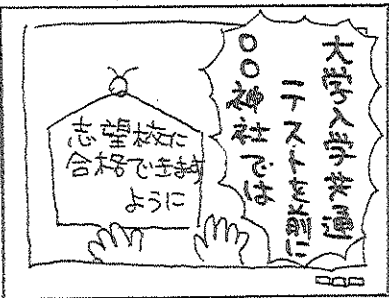 大学入学共通
テストを前に
〇〇神社では
志望校に
合格できます
ように